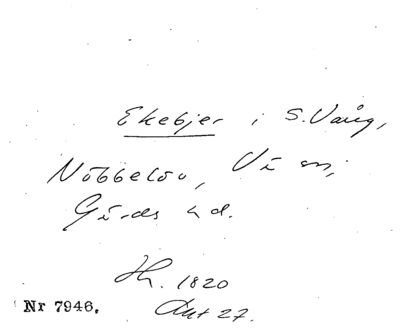 Ekebjer i S. Vång,
Nöbbelöv, V:a sn,
Gärds hd.
Hh. 1820
Akt 27.
Nr 7946.